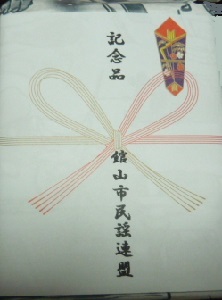 記念品
館山市民謡連盟